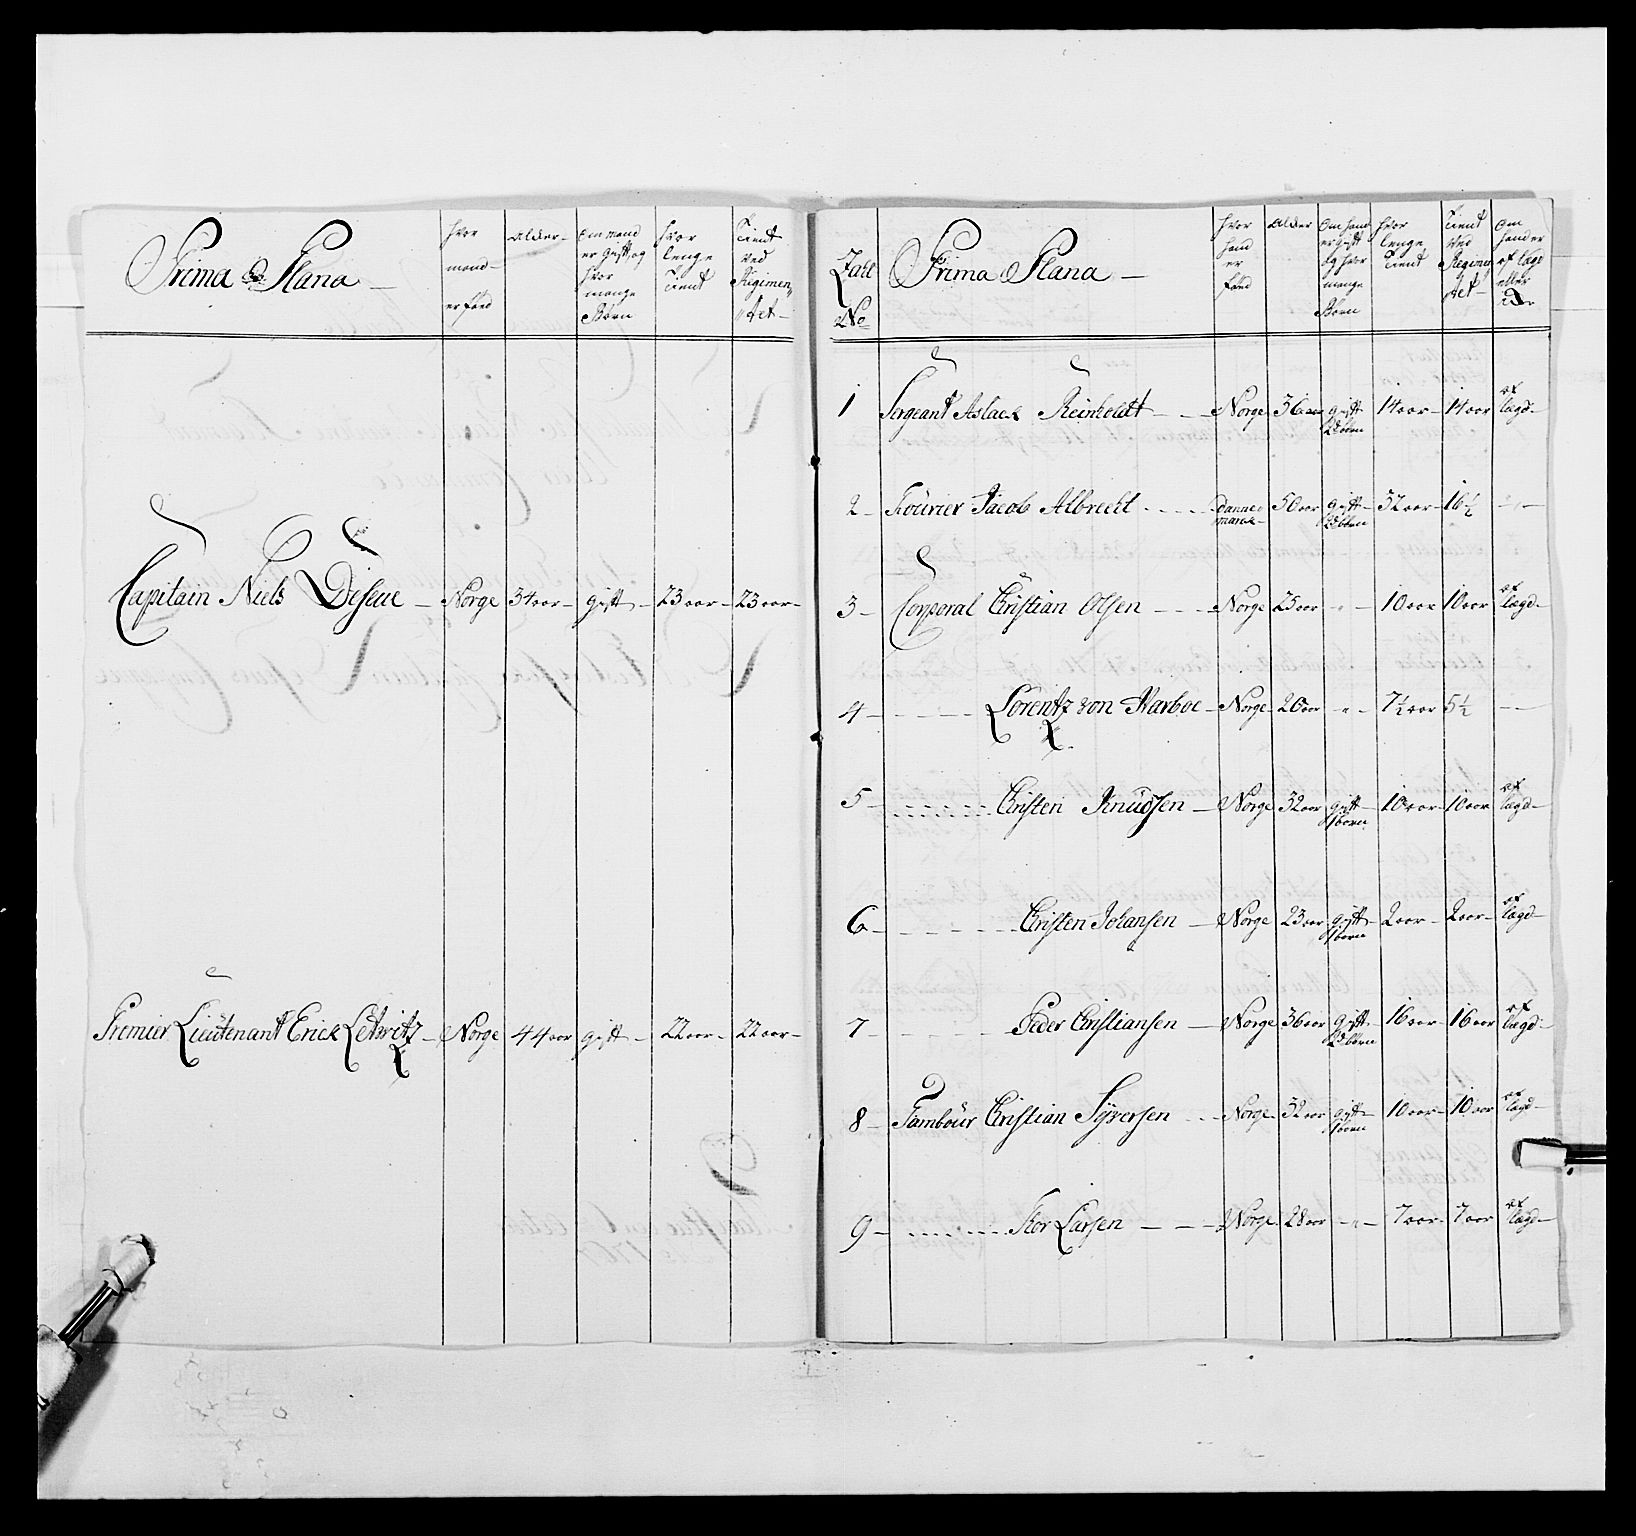 Prima Plana —
hvor
mand
er fød
Alder
Om mand
er gift, og
hvor
mange
Børn
hvor
lenge
tient
tient
ved
Regimen„
tet —
Capitain Niels — Norge 34 aar — gift — 23 aar — 23 aar —
Premier Lieutenant Erick — Norge 44 aar gift — 22 aar — 22 aar —
Prima Plana —
No
hvor
hand
er
fød
Alder
Om hand
er gift
og hvor
mange
Børn
hvor
lenge
tient
tient
ved
Regimen
tet —
Om
hand er
af lægd
eller
1 Sergeant Aslack Reinholdt — — Norge 36 aar gift 14 aar — 14 aar af
2 børn lægd —
2 — Fourier Jacob Albrecht — Danne 50 aar gift 32 aar — 16½
marck — børn
3 — Corporal Christian Olsen — — Norge 25 aar — 10 aar 10 aar af
lægd —
4 — Lorentz von — Norge 20 aar — 7½ aar 5½ —
5 — Christen Knudsen — Norge 32 aar gift 10 aar — 10 aar af
børn lægd —
6 — Christen Johansen — Norge 23 aar gift 2 aar — 2 aar — af
børn lægd —
7 — Peder Christiansen — Norge 36 aar gift 16 aar — 16 aar af
børn lægd —
8 — Tambour Christian Syversen — Norge 32 aar gift 10 aar — 10 aar af
børn lægd —
9 — Larsen — — Norge 28 aar — 7 aar — 7 aar af
lægd —